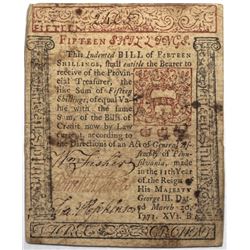 FIFTEEN SHILLINGS.
This Indented BILL of FIFTEEN
SHILLINGS, shall entitle the Bearer to
receive of the Provin-
cial Treasurer, the
like Sum of Fifteen
Shillings, of equal Va-
lue with the same
Sum, of the Bills of
Credit now by Law
current, according
to the Directions of an Act of General As-
sembly of Penn-
sylvania, made
in the 11th Year
of the Reign of
His MAJESTY
GEORGE III. Dat-
ed March 20,
1771. XVs.